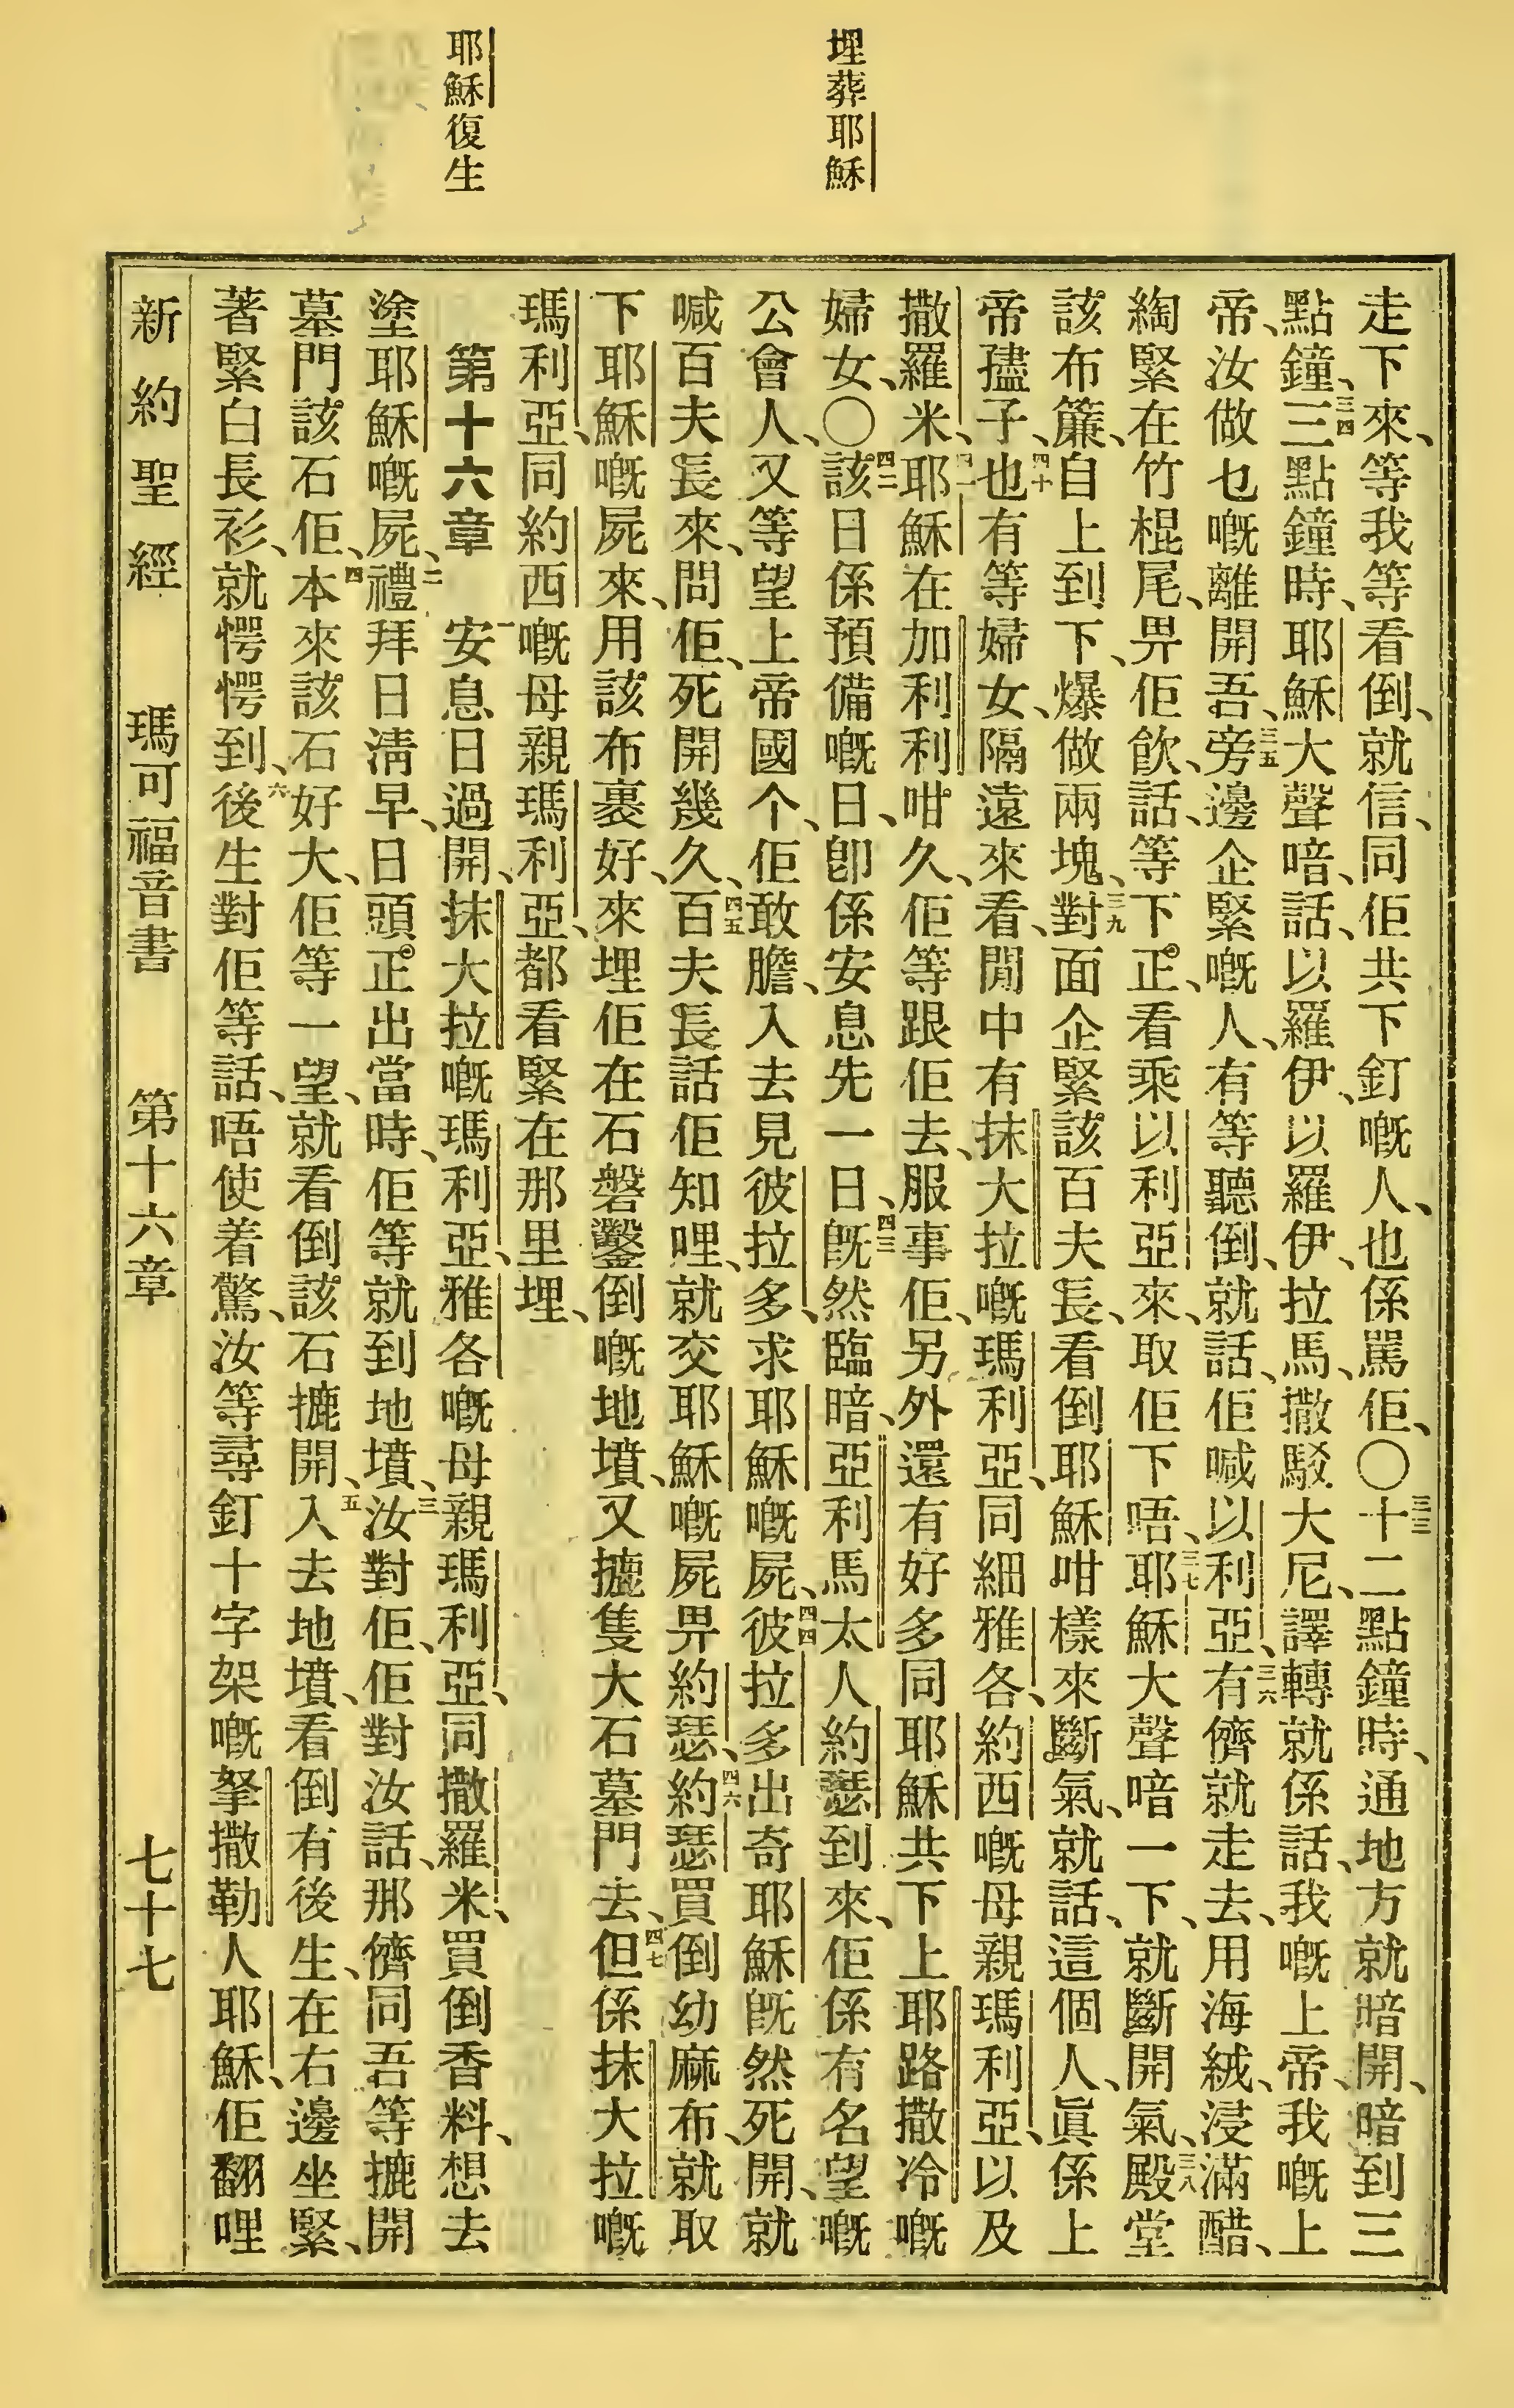 埋葬耶穌
耶穌復生
走下來、等我等看倒、就信、同佢共下釘嘅人、也係罵佢、〇三三十二點鐘時、通地方就暗開、暗到三
點鐘、三四三點鐘時、耶穌大聲喑、話、以羅伊、以羅伊、拉馬、撒駁大尼、譯轉就係話、我嘅上帝、我嘅上
帝、汝做乜嘅離開吾、三五旁邊企緊嘅人、有等聽倒、就話、佢喊以利亞、三六有儕就走去、用海絨、浸滿醋、
綯緊在竹棍尾、畀佢飲、話、等下正、看乘以利亞來、取佢下唔、三七耶穌大聲喑一下、就斷開氣、三八殿堂
該布簾、自上到下、爆做兩塊、三九對面企緊該百夫長、看倒耶穌咁樣來斷氣、就話、這個人、眞係上
帝孻子、四十也有等婦女、隔遠來看、閒中有抹大拉嘅瑪利亞、同細雅各、約西嘅母親瑪利亞、以及
撒羅米、四一耶穌在加利利咁久、佢等跟佢去、服事佢、另外還有好多同耶穌共下上耶路撒冷嘅
婦女、〇四二該日係預備嘅日、卽係安息先一日、四三旣然臨暗、亞利馬太人約瑟到來、佢係有名望嘅
公會人、又等望上帝國个、佢敢膽、入去見彼拉多、求耶穌嘅屍、四四彼拉多出奇耶穌旣然死開、就
喊百夫長來、問佢、死開幾久、四五百夫長話佢知哩、就交耶穌嘅屍畀約瑟、四六約瑟買倒幼麻布、就取
下耶穌嘅屍來、用該布裹好、來埋佢在石磐鑿倒嘅地墳、又摭隻大石墓門去、四七但係抹大拉嘅
瑪利亞、同約西嘅母親瑪利亞、都看緊在那里埋、
第十六章　一安息日過開、抹大拉嘅瑪利亞、雅各嘅母親瑪利亞、同撒羅米、買倒香料、想去
塗耶穌嘅屍、二禮拜日淸早、日頭正出當時、佢等就到地墳、三汝對佢、佢對汝話、那儕同吾等摭開
墓門該石佢、四本來該石好大、佢等一望、就看倒該石摭開、五入去地墳、看倒有後生、在右邊坐緊、
著緊白長衫、就愕愕到、六後生對佢等話、唔使着驚、汝等尋釘十字架嘅拏撒勒人耶穌、佢翻哩
新約聖經　瑪可福音書　第十六章　七十七